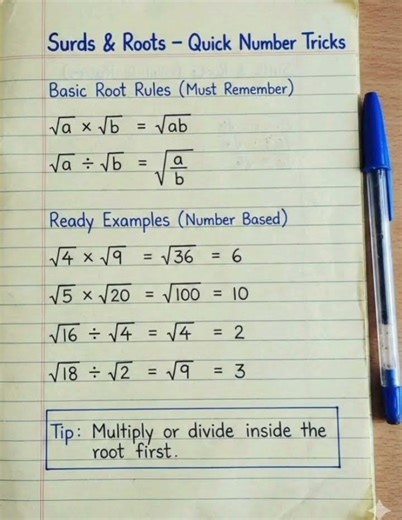 Surds & Roots – Quick Number Tricks
Basic Root Rules (Must Remember)
√a × √b = √ab
√a ÷ √b = √(a/b)
Ready Examples (Number Based)
√4 × √9 = √36 = 6
√5 × √20 = √100 = 10
√16 ÷ √4 = √4 = 2
√18 ÷ √2 = √9 = 3
Tip: Multiply or divide inside the
root first.